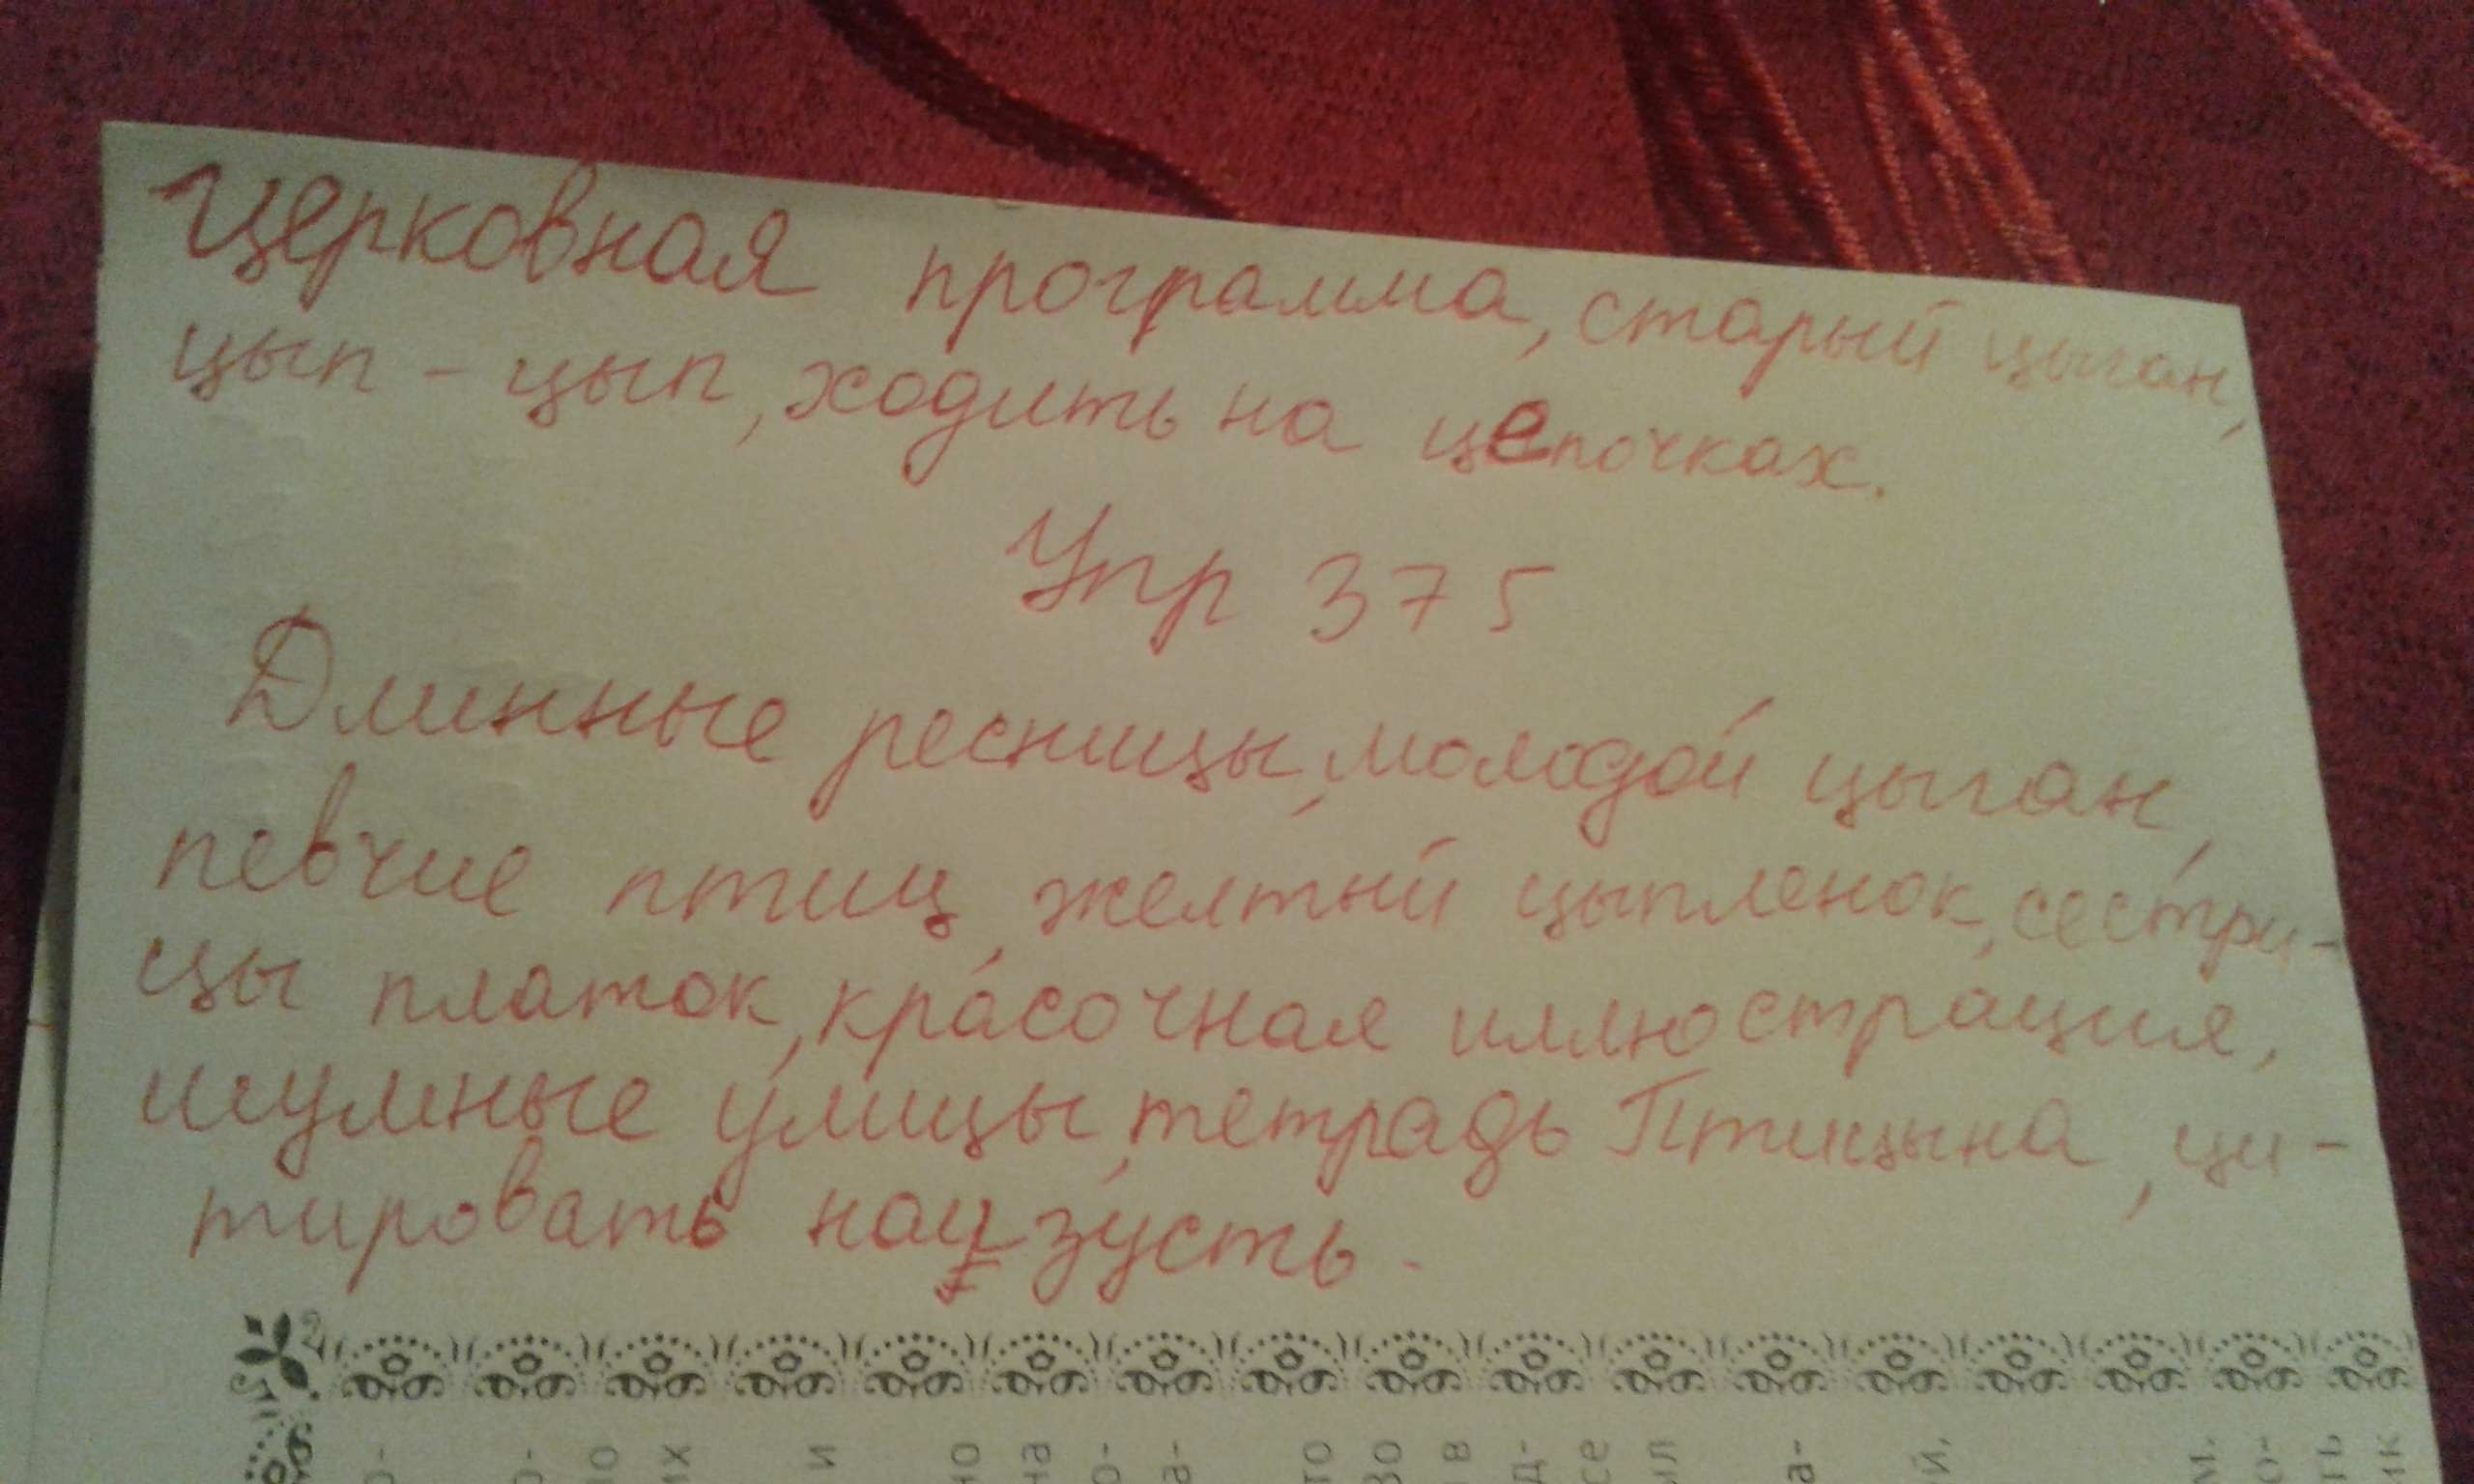 Церковная программа, старый цыган,
цып - цып, ходить на цепочках.
Упр 375
Длинные ресницы, молодой цыган,
певчие птиц, желтый цыпленок, сестри-
цы платок, красочная иллюстрация,
шумные улицы, тетрадь Птицына, ци-
тировать наузусть.